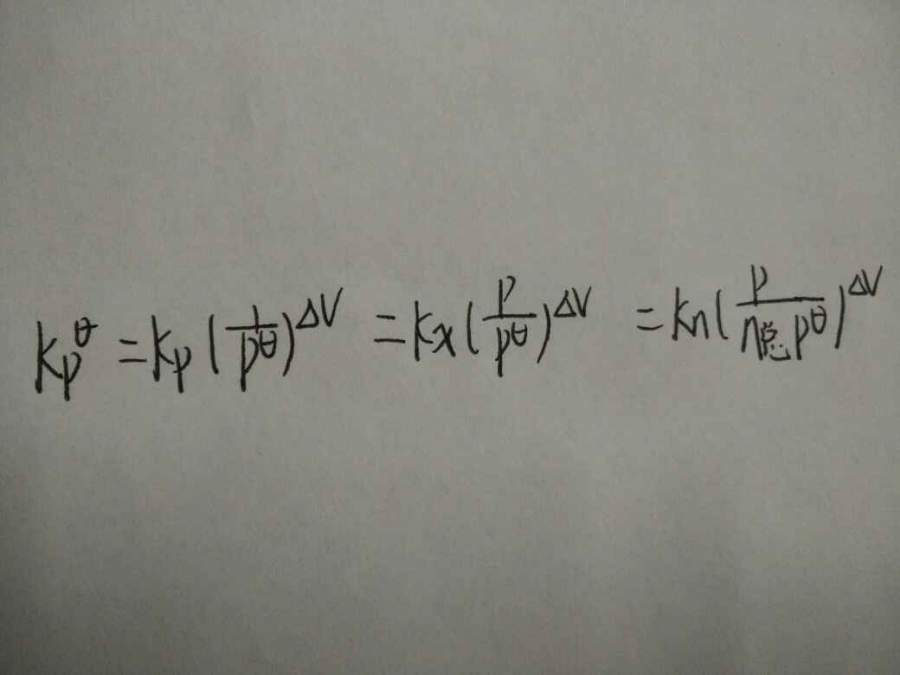 Kp^θ = Kp (1/p^θ)^ΔV = Kx (p/p^θ)^ΔV = Kn (p/n总 p^θ)^ΔV